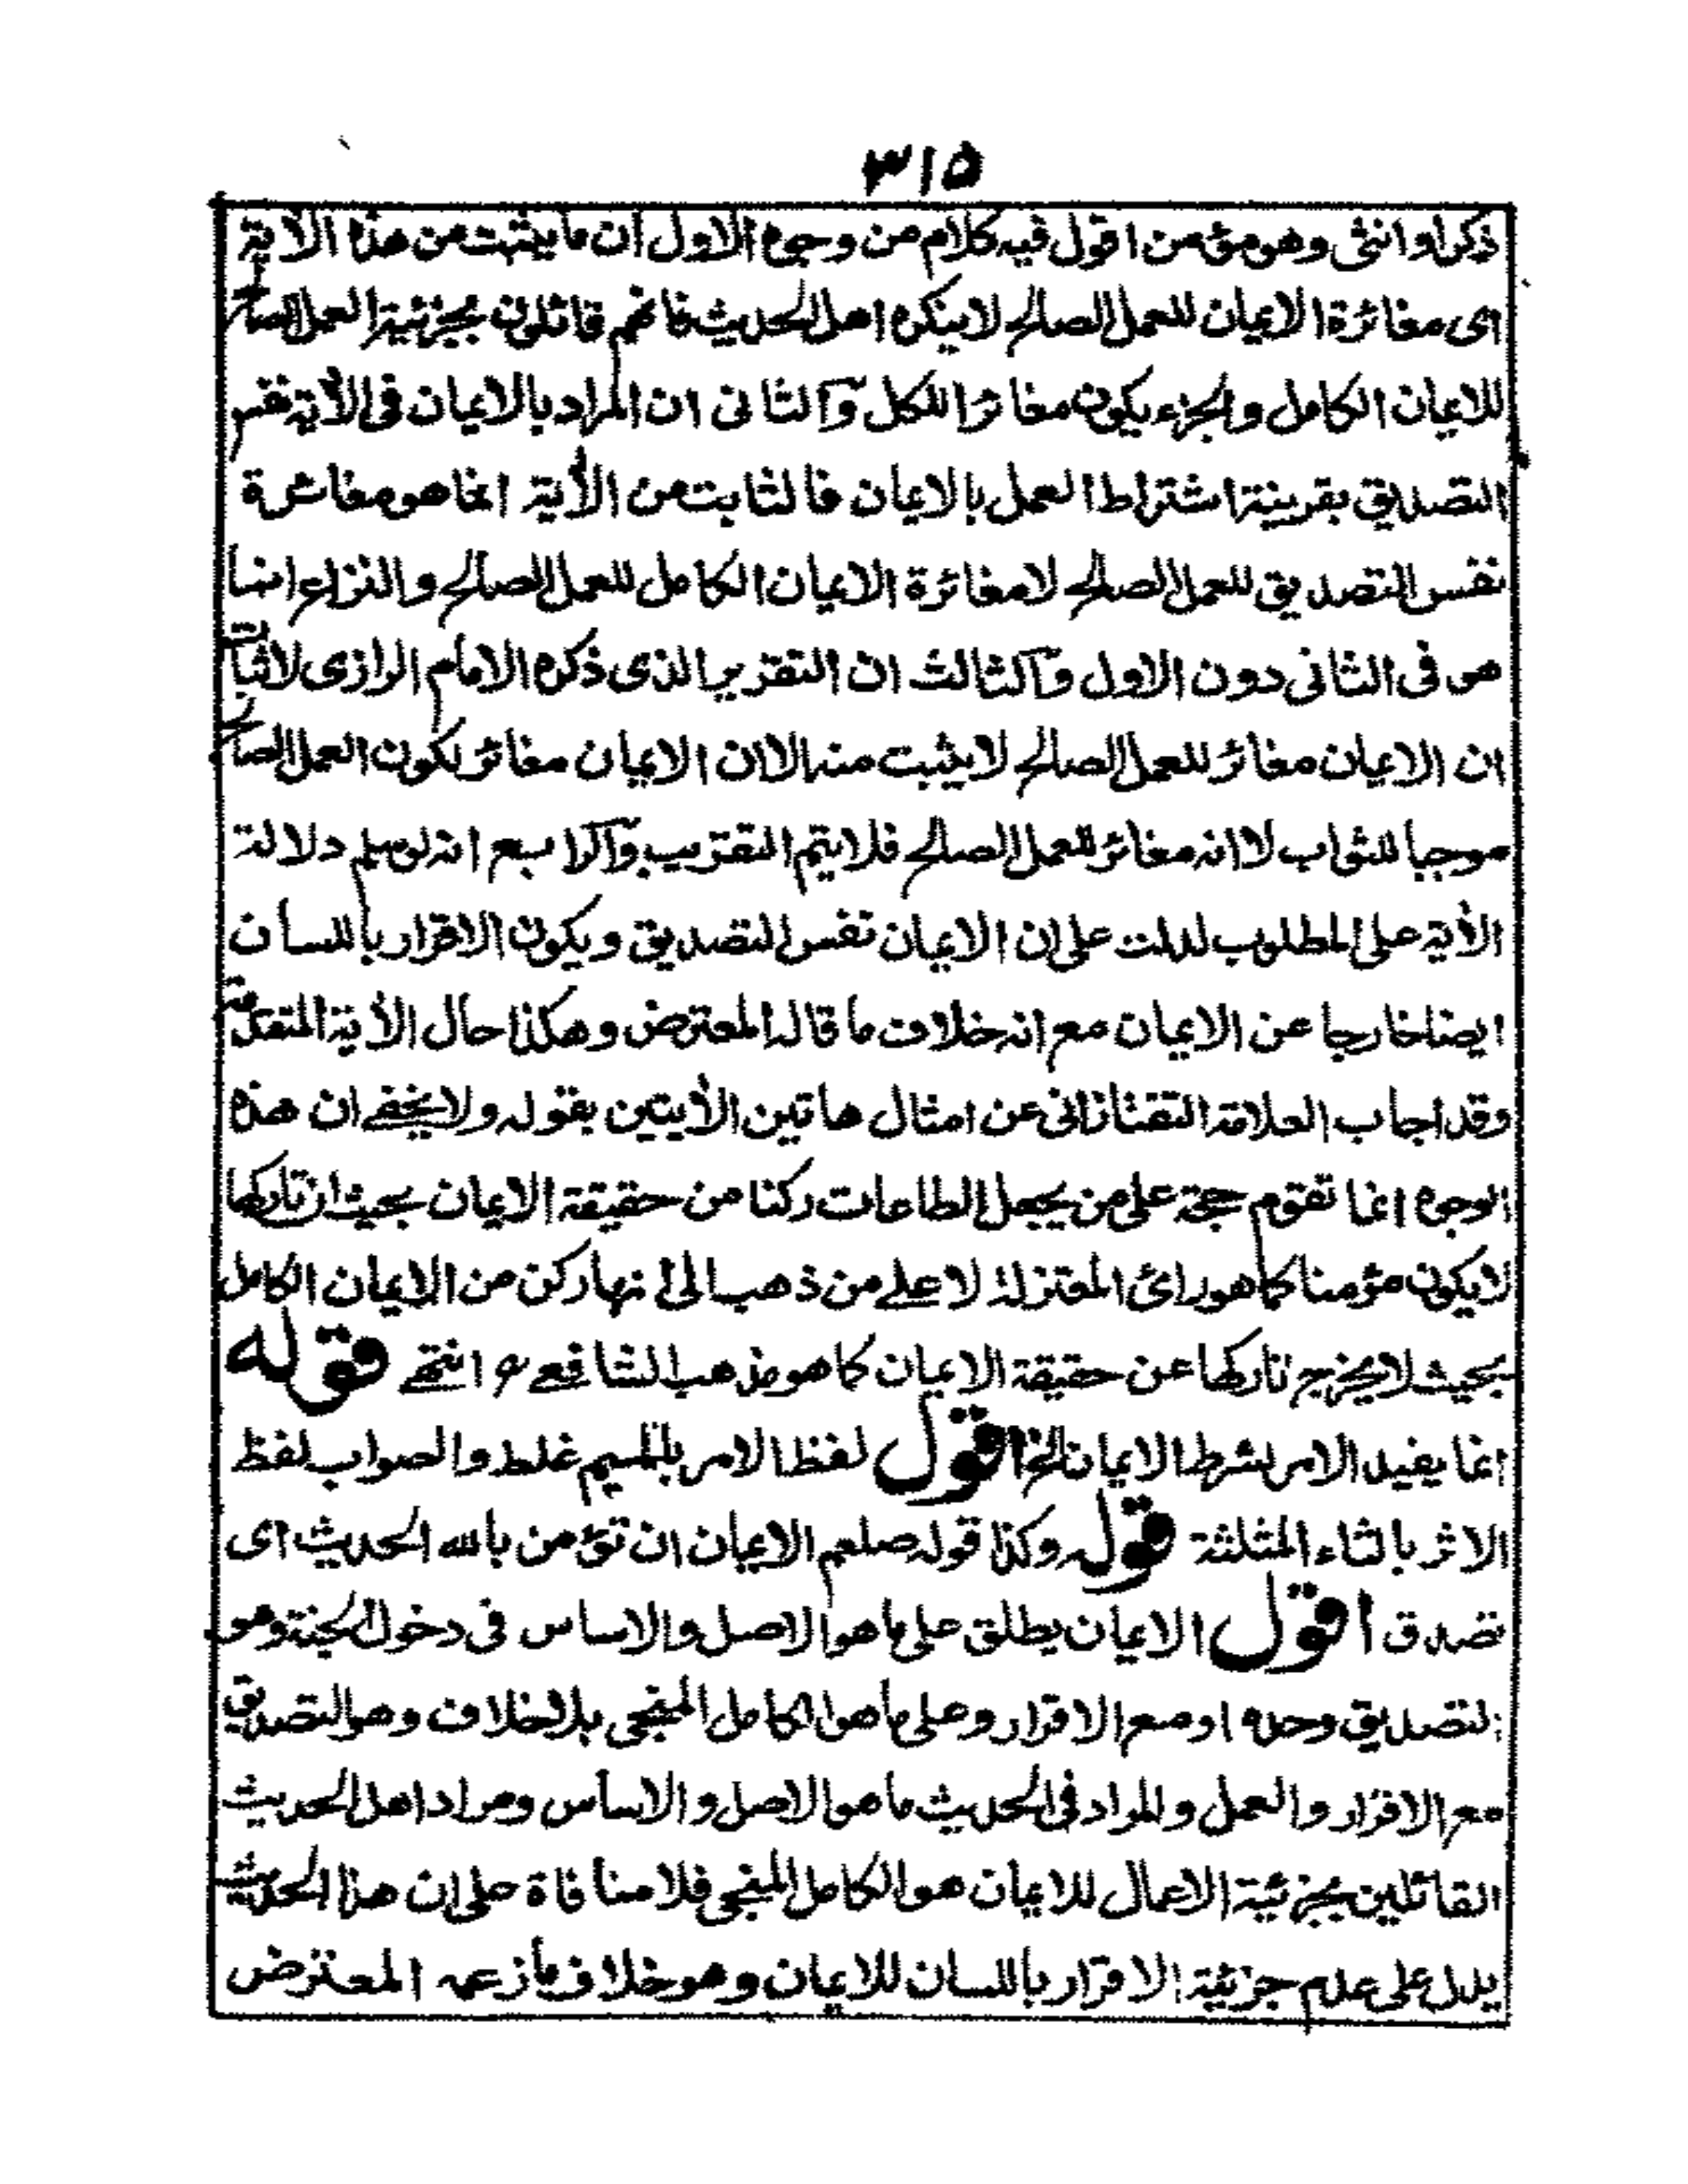 ٣١٥
ذكر او انثى وهو مؤمن اقول فيه كلام من وجوه الاول ان ما يثبت من هذه الاية
اى مغائرة الايمان للعمل الصالح لا ينكره اهل الحديث فانهم قائلون بجزئية العمل الصالح
للايمان الكامل والجزء يكون مغائرا للكل والثانى ان المراد بالايمان فى الأية نفس
التصديق بقرينة اشتراط العمل بالايمان فالثابت من الأية انما هو مغائرة
نفس التصديق للعمل الصالح لا مغائرة الايمان الكامل للعمل الصالح والنزاع انما
هو فى الثانى دون الاول والثالث ان التقرير الذى ذكره الامام الرازى لاثبات
ان الايمان مغائر للعمل الصالح لا يثبت منه الا ان الايمان مغائر لكون العمل الصالح
موجبا للثواب لا انه مغائر للعمل الصالح فلا يتم التقريب والرابع انه لو سلم دلالة
الأية على المطلوب لدلت على ان الايمان نفس التصديق ويكون الاقرار باللسان
ايضا خارجا عن الايمان مع انه خلاف ما قاله المعترض وهكذا حال الأية المتقدمة
وقد اجاب العلامة التفتازانى عن امثال هاتين الأيتين بقوله ولا يخفے ان هذه
الوجوه انما تقوم حجة على من يجعل الطاعات ركنا من حقيقة الايمان بحيث ان تاركها
لا يكون مؤمنا كما هو رائ المعتزلة لا علے من ذهب الى انها ركن من الايمان الكامل
بحيث لا يخرج تاركها عن حقيقة الايمان كما هو مذهب الشافعے انتهے قوله
انما يفيد الامر بشرط الايمان الخ اقول لفظ الامر بالميم غلط والصواب لفظ
الاثر بالثاء المثلثة قوله وكذا قوله صلعم الايمان ان تؤمن بالله الحديث اى
تصدق اقول الايمان يطلق على ما هو الاصل والاساس فى دخول الجنة وهو
التصديق وحده او مع الاقرار وعلى ما هو الكامل المنجى بلا خلاف وهو التصديق
مع الاقرار والعمل والمراد فى الحديث ما هو الاصل والاساس ومراد اهل الحديث
القائلين بجزئية الاعمال للايمان هو الكامل المنجى فلا منافاة على ان هذا الحديث
يدل على عدم جزئية الاقرار باللسان للايمان وهو خلاف ما زعمه المعترض